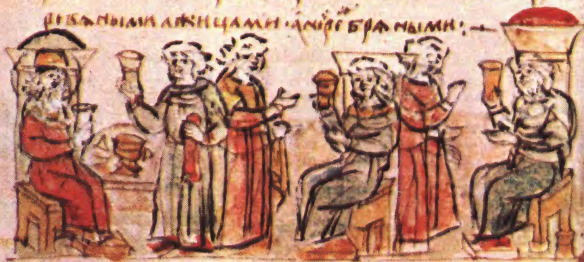 ревѧными лжицами · а не сребрѧными :·